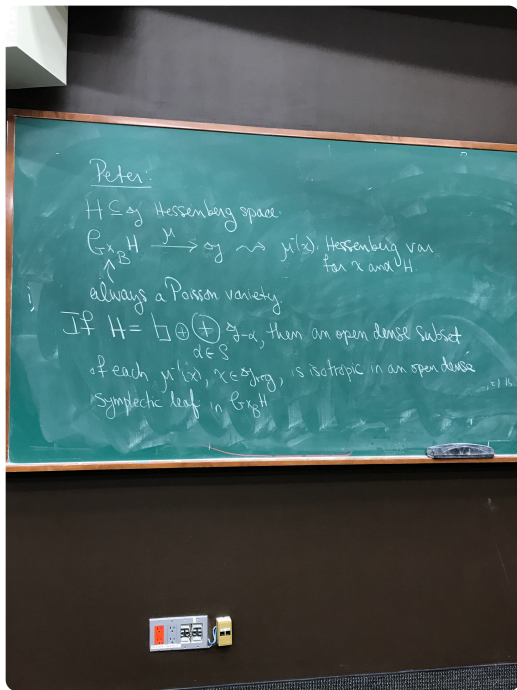 Peter:
H ⊆ 𝔤 Hessenberg space.
G×_B H —μ→ 𝔤 ⇝ μ⁻¹(x). Hessenberg var.
for x and H.
↑
always a Poisson variety.
If H = 𝔟 ⊕ ⊕_{α∈S} 𝔤_{-α}, then an open dense subset
of each μ⁻¹(x), x ∈ 𝔤_reg, is isotropic in an open dense
symplectic leaf in G×_B H